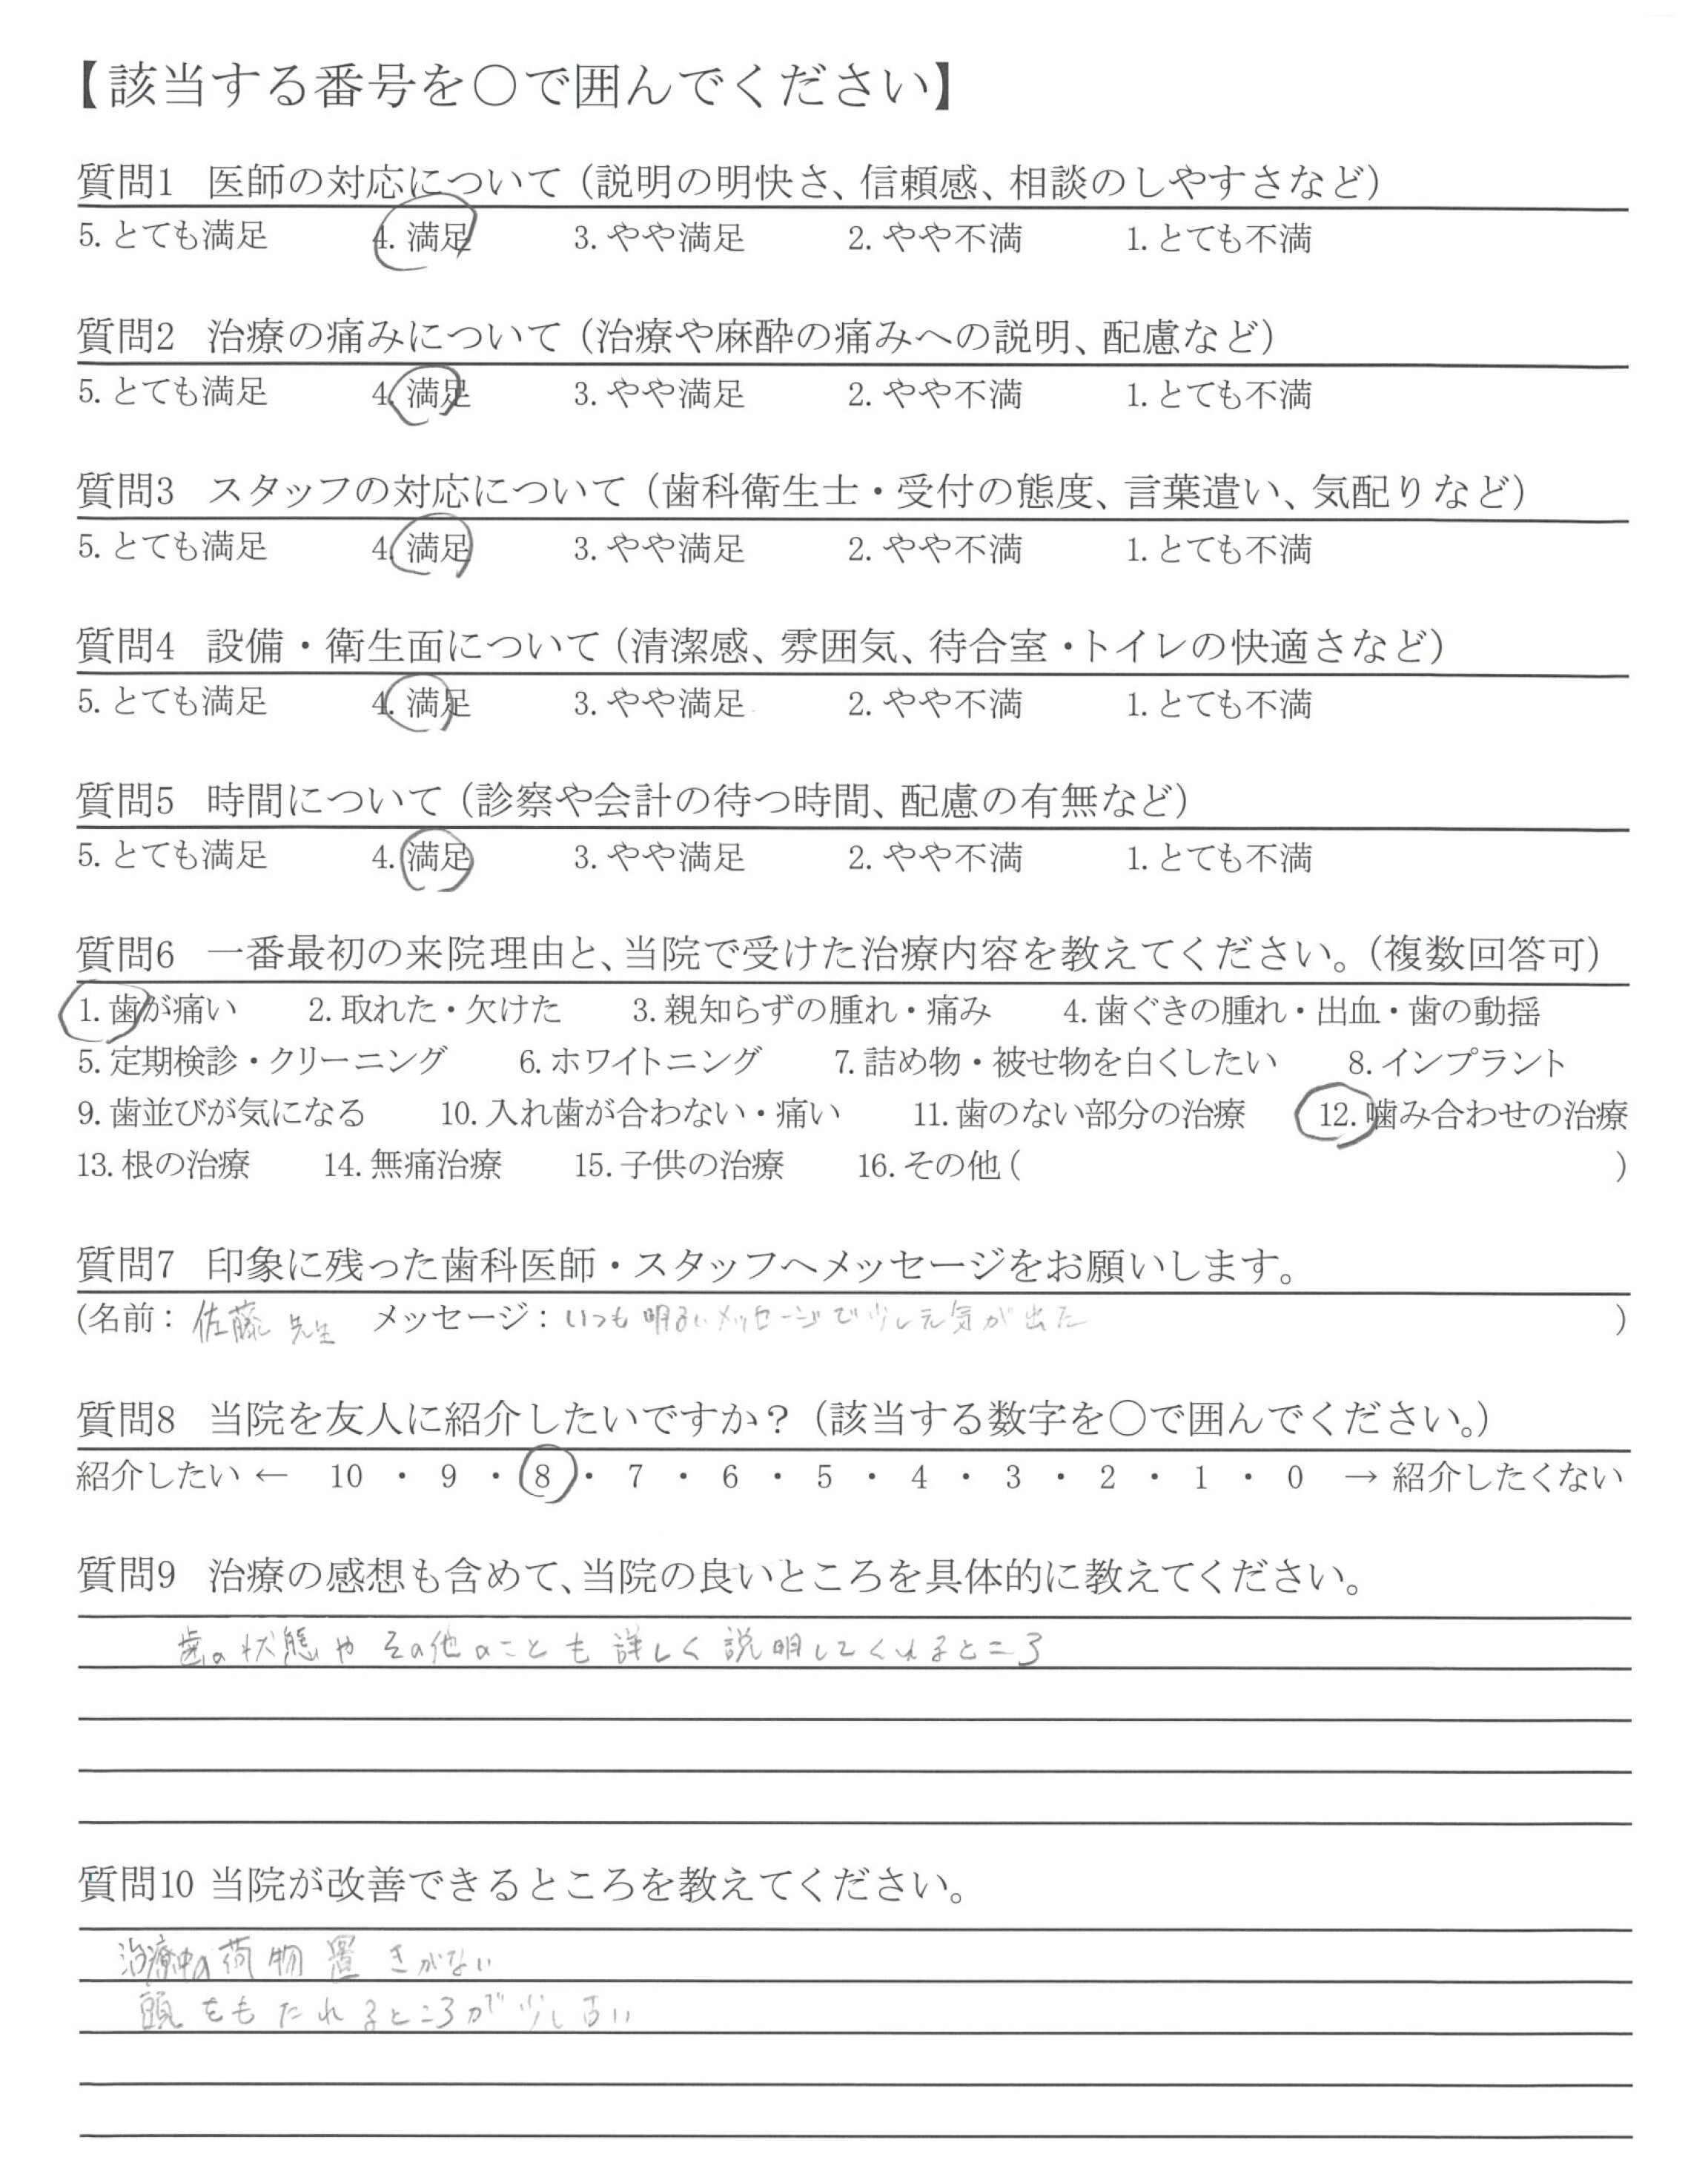 【該当する番号を○で囲んでください】
質問1 医師の対応について（説明の明快さ、信頼感、相談のしやすさなど）
5. とても満足 4. 満足 3. やや満足 2. やや不満 1. とても不満
質問2 治療の痛みについて（治療や麻酔の痛みへの説明、配慮など）
5. とても満足 4. 満足 3. やや満足 2. やや不満 1. とても不満
質問3 スタッフの対応について（歯科衛生士・受付の態度、言葉遣い、気配りなど）
5. とても満足 4. 満足 3. やや満足 2. やや不満 1. とても不満
質問4 設備・衛生面について（清潔感、雰囲気、待合室・トイレの快適さなど）
5. とても満足 4. 満足 3. やや満足 2. やや不満 1. とても不満
質問5 時間について（診察や会計の待つ時間、配慮の有無など）
5. とても満足 4. 満足 3. やや満足 2. やや不満 1. とても不満
質問6 一番最初の来院理由と、当院で受けた治療内容を教えてください。（複数回答可）
1. 歯が痛い 2. 取れた・欠けた 3. 親知らずの腫れ・痛み 4. 歯ぐきの腫れ・出血・歯の動揺
5. 定期検診・クリーニング 6. ホワイトニング 7. 詰め物・被せ物を白くしたい 8. インプラント
9. 歯並びが気になる 10. 入れ歯が合わない・痛い 11. 歯のない部分の治療 12. 噛み合わせの治療
13. 根の治療 14. 無痛治療 15. 子供の治療 16. その他（ ）
質問7 印象に残った歯科医師・スタッフへメッセージをお願いします。
（名前：佐藤先生 メッセージ：いつも明るいメッセージで少し元気が出た ）
質問8 当院を友人に紹介したいですか？（該当する数字を○で囲んでください。）
紹介したい ← 10 ・ 9 ・ 8 ・ 7 ・ 6 ・ 5 ・ 4 ・ 3 ・ 2 ・ 1 ・ 0 → 紹介したくない
質問9 治療の感想も含めて、当院の良いところを具体的に教えてください。
歯の状態やその他のことも詳しく説明してくれるところ
質問10 当院が改善できるところを教えてください。
治療中の荷物置きがない
頭をもたれるところが少し古い